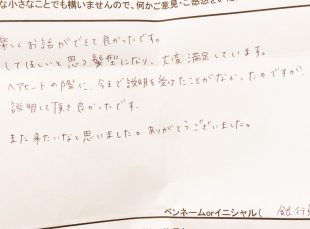 な小さなことでも構いませんので、何かご意見・ご感想をいた
楽しくお話ができて良かったです。
してほしいと思う髪型になり、大変満足しています。
ヘアヒートの際に、今まで説明を受けたことがなかったのですが、
説明して頂き良かったです。
また来たいなと思いました。ありがとうございました。
ペンネームorイニシャル(